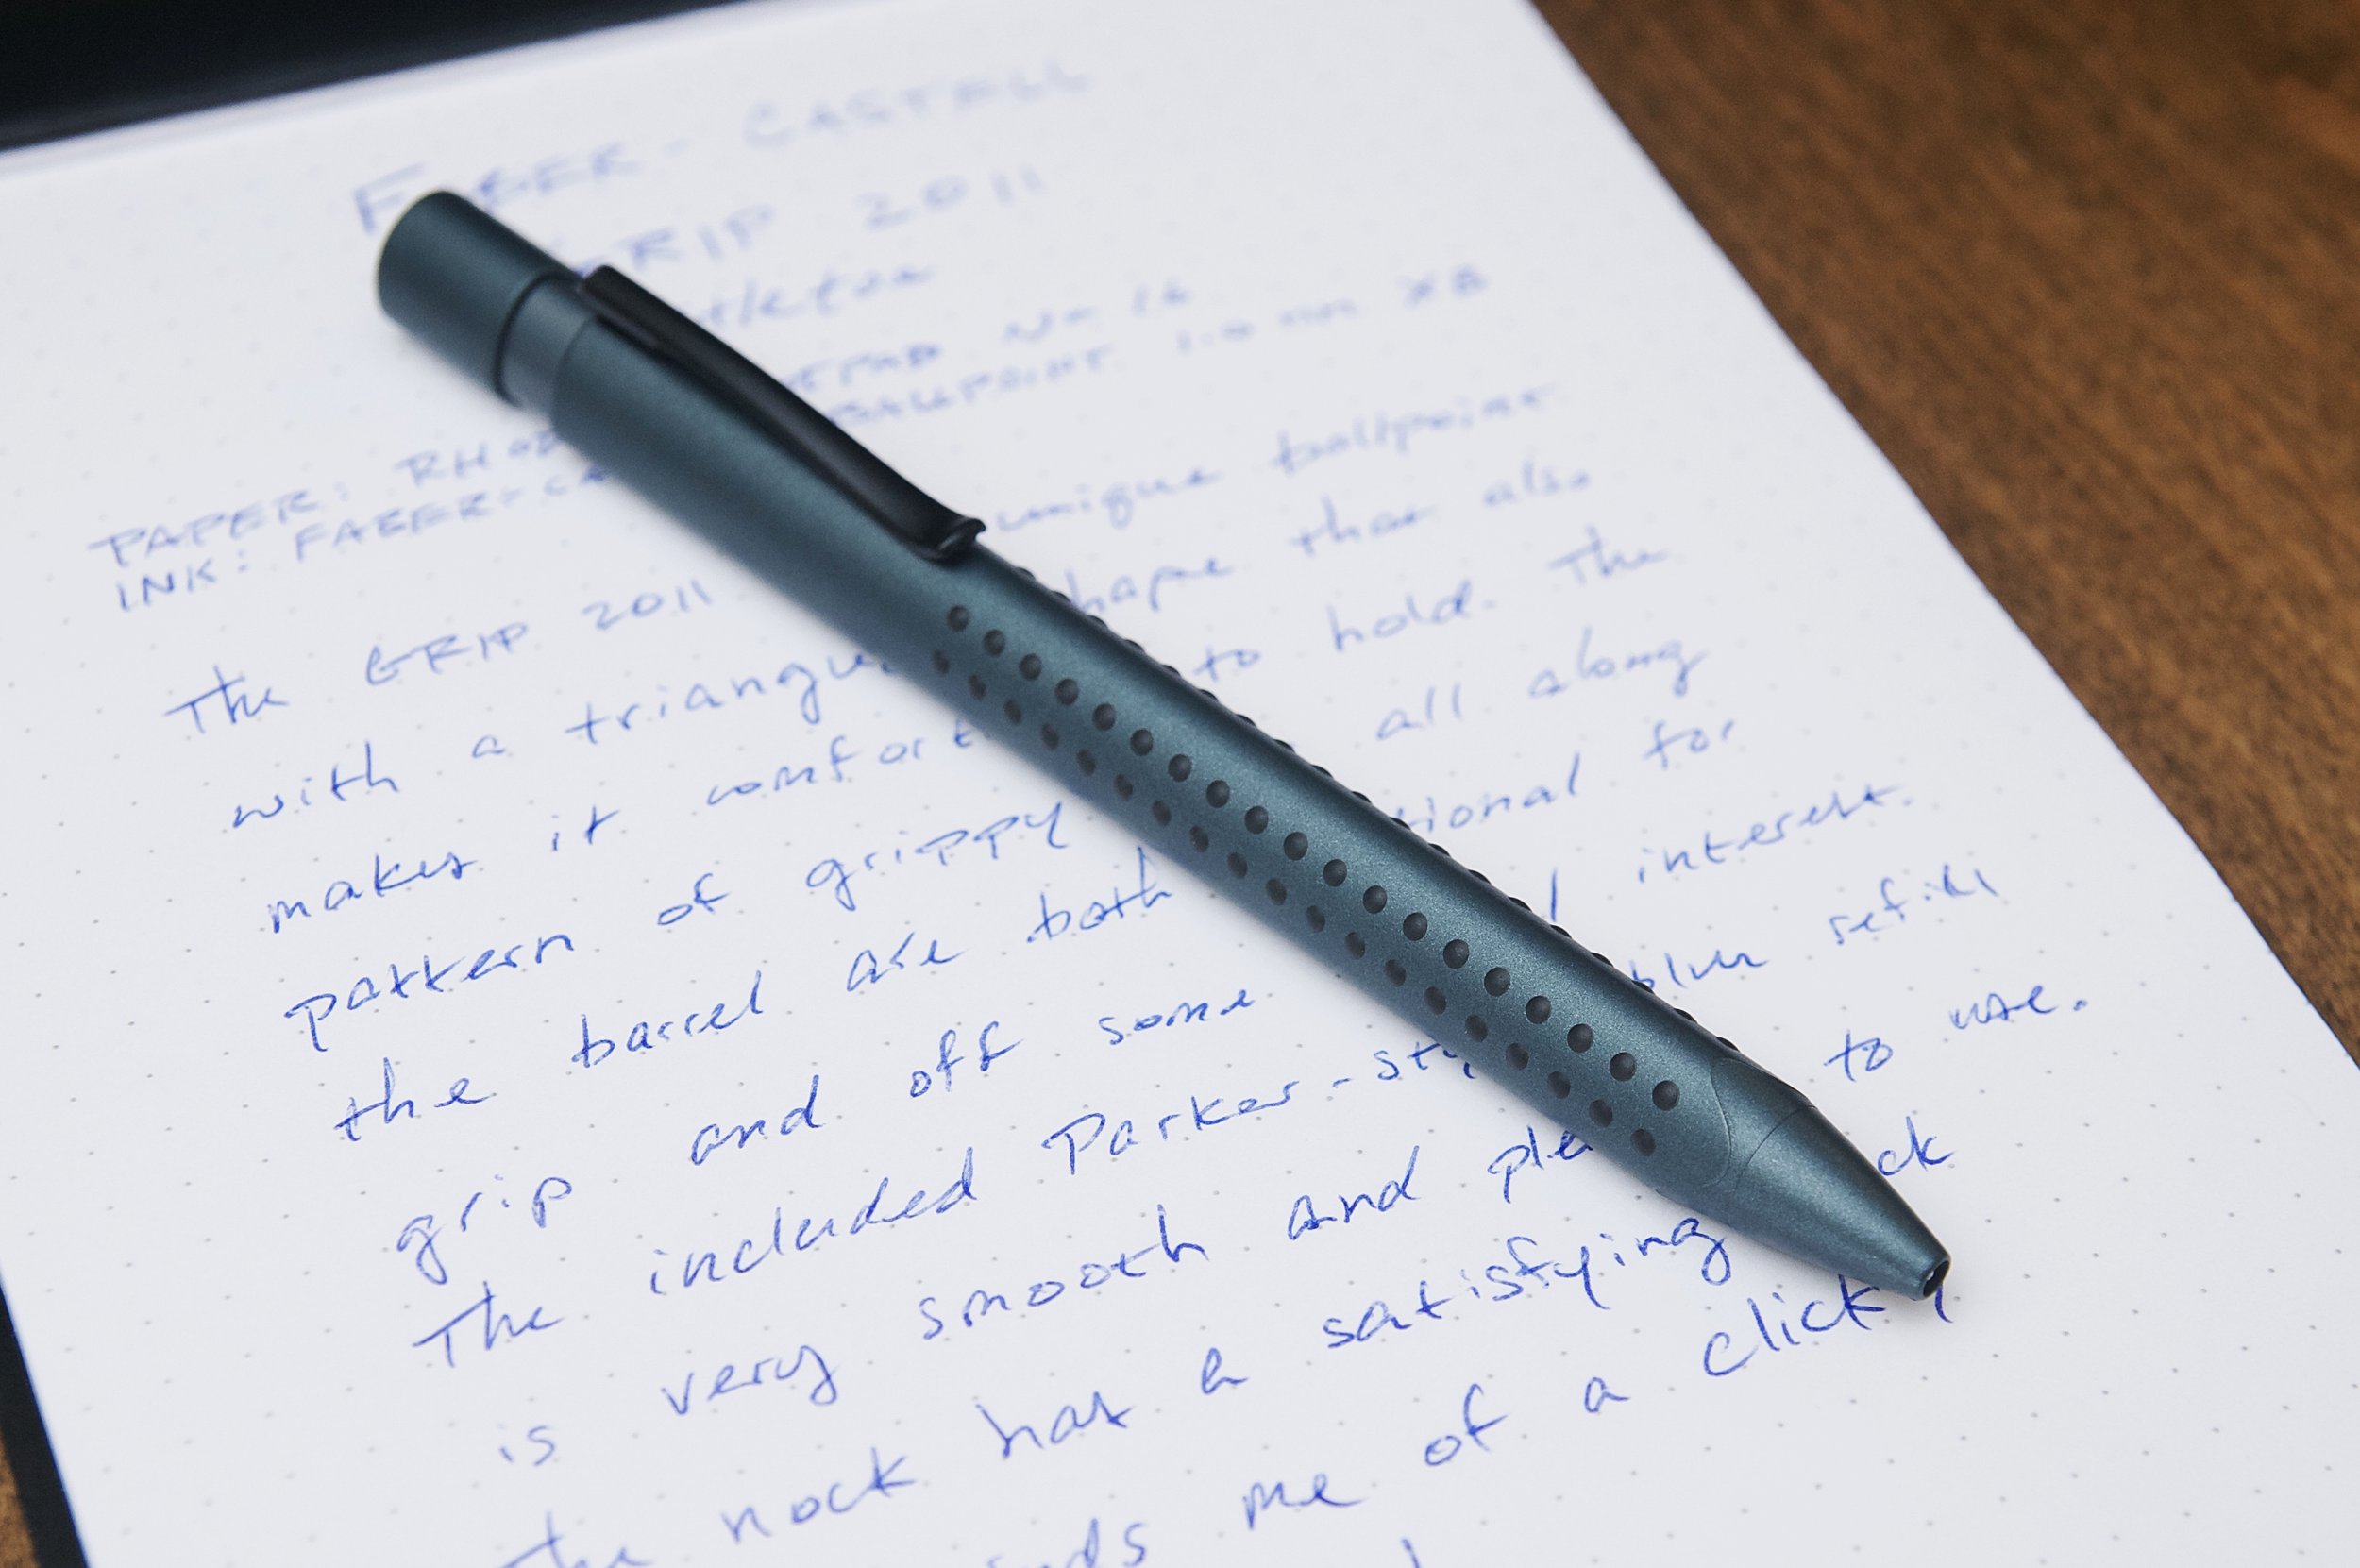 FABER-CASTELL
GRIP 2011
PAPER: RHOD EPAD No 16
INK: FABER-CA BALLPOINT 1.0 mm XB
The GRIP 2011 unique ballpoint
with a triangu hape that also
makes it comfort to hold. The
pattern of grippy all along
the barrel are both tional for
grip and off some l interest.
The included Parker-sty blue refill
is very smooth and plea to use.
The nock has a satisfying ck
nds me of a click y